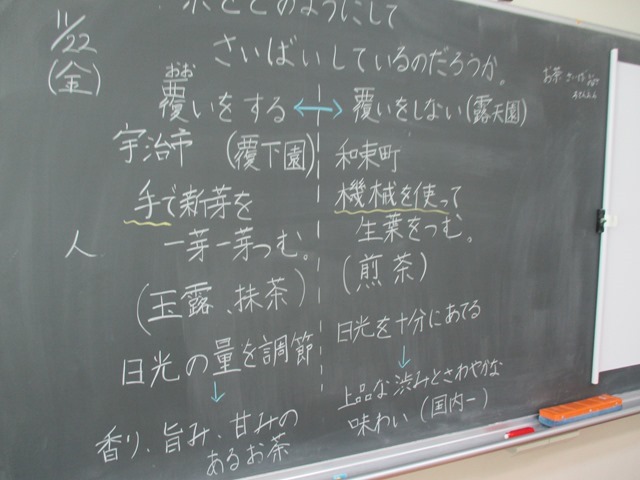 11/22
(金)
茶をどのようにして
さいばいしているのだろうか。
おお
覆いをする ↔ 覆いをしない(露天園)
宇治市 (覆下園)
手で新芽を
一芽一芽つむ。
人
(玉露、抹茶)
日光の量を調節
↓
香り、旨み、甘みの
あるお茶
和束町
機械を使って
生葉をつむ。
(煎茶)
日光を十分にあてる
↓
上品な渋みとさわやかな
味わい (国内一)
お茶